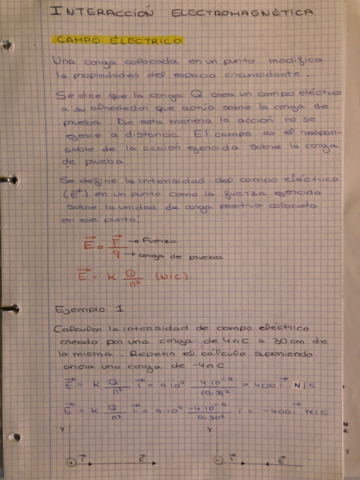 INTERACCIÓN ELECTROMAGNÉTICA
CAMPO ELÉCTRICO
Una carga colocada en un punto modifica
la propiedades del espacio circundante.
Se dice que la carga Q crea un campo eléctrico
a su alrededor que actúa sobre la carga de
prueba. De esta manera la acción no se
ejerce a distancia. El campo es el respon-
sable de la acción ejercida sobre la carga
de prueba.
Se define la intensidad del campo eléctrico
(E⃗) en un punto como la fuerza ejercida
sobre la unidad de carga positiva colocada
en ese punto.
E⃗ = F⃗/q → Fuerza → carga de prueba
E⃗ = K Q/r² (N/C)
Ejemplo 1
Calcular la intensidad de campo eléctrico
creado por una carga de 4nC a 30 cm de
la misma. Repetir el cálculo suponiendo
ahora una carga de -4nC
E⃗ = K Q/r² i⃗ = 9·10⁹ 4·10⁻⁹/(0,3)² = 400 i⃗ N/C
E⃗ = K Q/r² i⃗ = 9·10⁹ -4·10⁻⁹/(0,30)² i = -400 i⃗ N/C
y y
+ i⃗ E⃗ - i⃗ E⃗